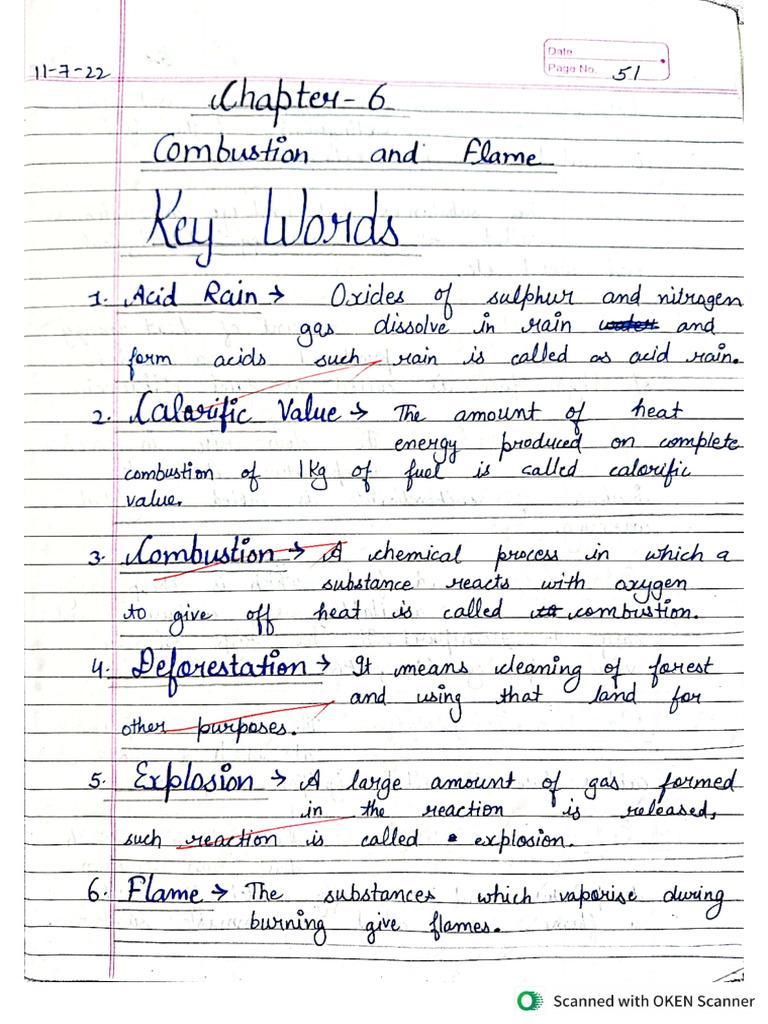 11-7-22
Date
Page No. 51
Chapter-6
Combustion and Flame
Key Words
1. Acid Rain → Oxides of sulphur and nitrogen
gas dissolve in rain water and
form acids such rain is called as acid rain.
2. Calorific Value → The amount of heat
energy produced on complete
combustion of 1kg of fuel is called calorific
value.
3. Combustion → A chemical process in which a
substance reacts with oxygen
to give off heat is called combustion.
4. Deforestation → It means cleaning of forest
and using that land for
other purposes.
5. Explosion → A large amount of gas formed
in the reaction is released,
such reaction is called explosion.
6. Flame → The substances which vaporise during
burning give flames.
Scanned with OKEN Scanner